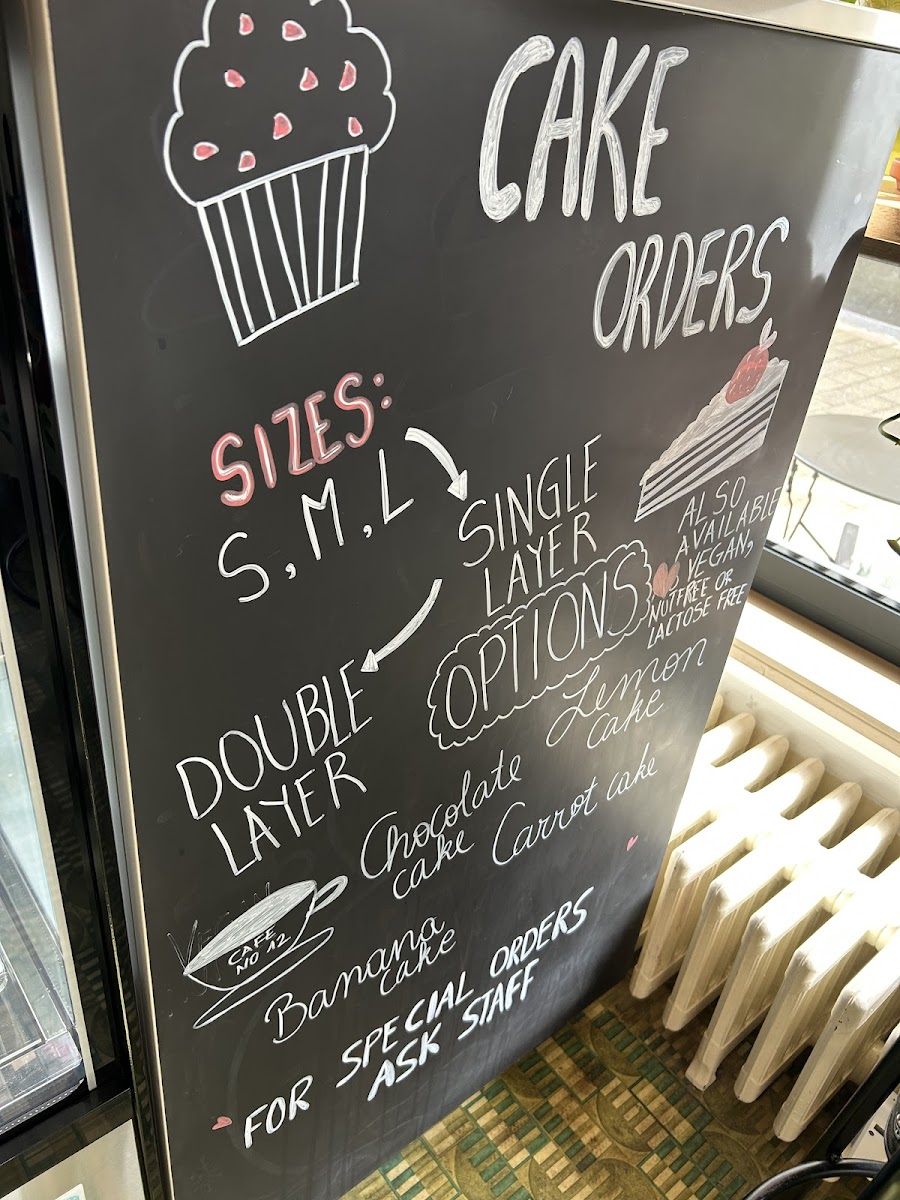 CAKE
ORDERS
SIZES:
S, M, L
SINGLE
LAYER
ALSO
AVAILABLE
VEGAN,
NUTFREE OR
LACTOSE FREE
OPTIONS
DOUBLE
LAYER
Lemon
cake
Chocolate
cake
Carrot cake
VEGAN
CAFE
NO 12
Banana
cake
FOR SPECIAL ORDERS
ASK STAFF